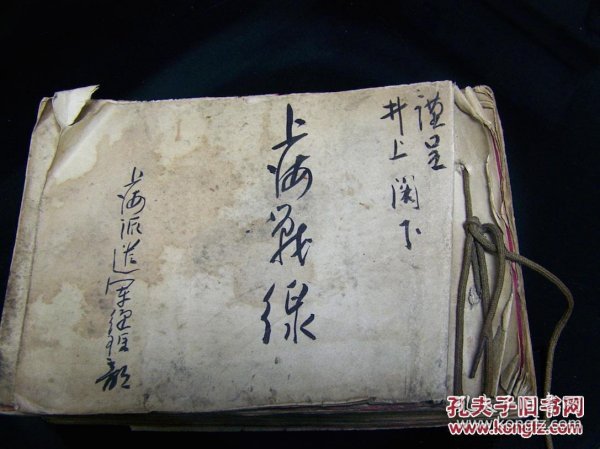 謹呈
井上閣下
上海戦線
上海派遣軍経理部
孔夫子旧书网
www.kongfz.com